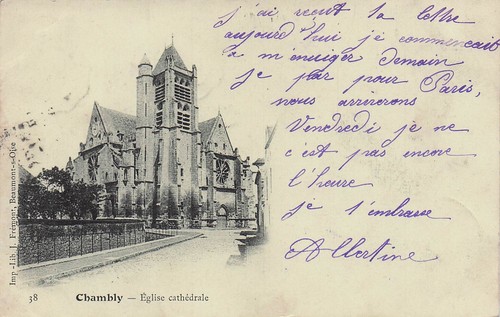 j'ai reçut ta lettre
aujourd'hui je commencait
a m'enuiger demain
je par pour Paris,
nous arriverons
Vendredi je ne
c'est pas encore
l'heure
je t'embrasse
Albertine
Imp.-Lib. J. Frémont, Beaumont-s-Oise
38 Chambly — Église cathédrale